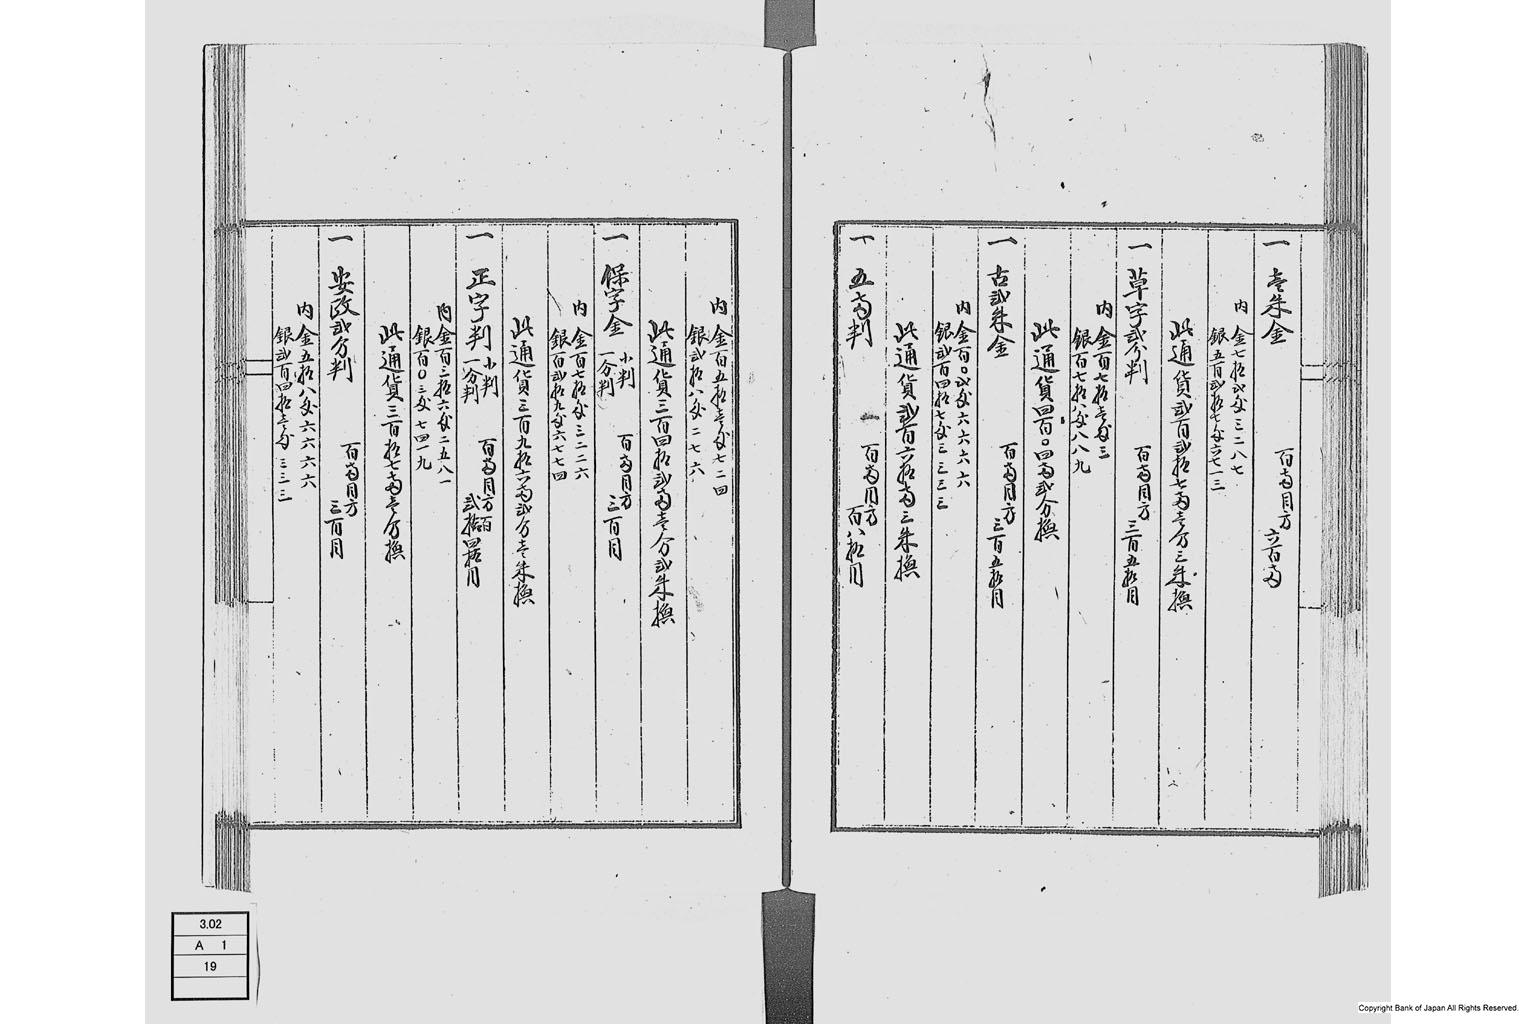 一 壱朱金 百両目方 六百目
内 金七拾弐匁三二八七
銀五百弐拾七匁六七一三
此通貨弐百弐拾七両壱分三朱換
一 草字弐分判 百両目方 三百五拾目
内 金百七拾壱匁三
銀百七拾八匁八八九
此通貨四百〇四両弐分換
一 古弐朱金 百両目方 三百五拾目
内 金百〇弐匁六六六六
銀弐百四拾七匁三三三三
此通貨弐百六拾両三朱換
一 五両判 百両目方 百八拾目
内 金百五拾壱匁七二四
銀弐拾八匁二七六
此通貨三百四拾弐両壱分弐朱換
一 保字金 小判 一分判 百両目方 三百目
内 金百七拾匁三二二六
銀百弐拾九匁六七七四
此通貨三百九拾六両弐分壱朱換
一 正字判 小判 一分判 百両目方 百弐拾四拾目
内 金百三拾六匁二五八一
銀百〇三匁七四一九
此通貨三百拾七両壱分換
一 安政弐分判 百両目方 三百目
内 金五拾八匁六六六六
銀弐百四拾壱匁三三三
3.02
A 1
19
Copyright Bank of Japan All Rights Reserved.